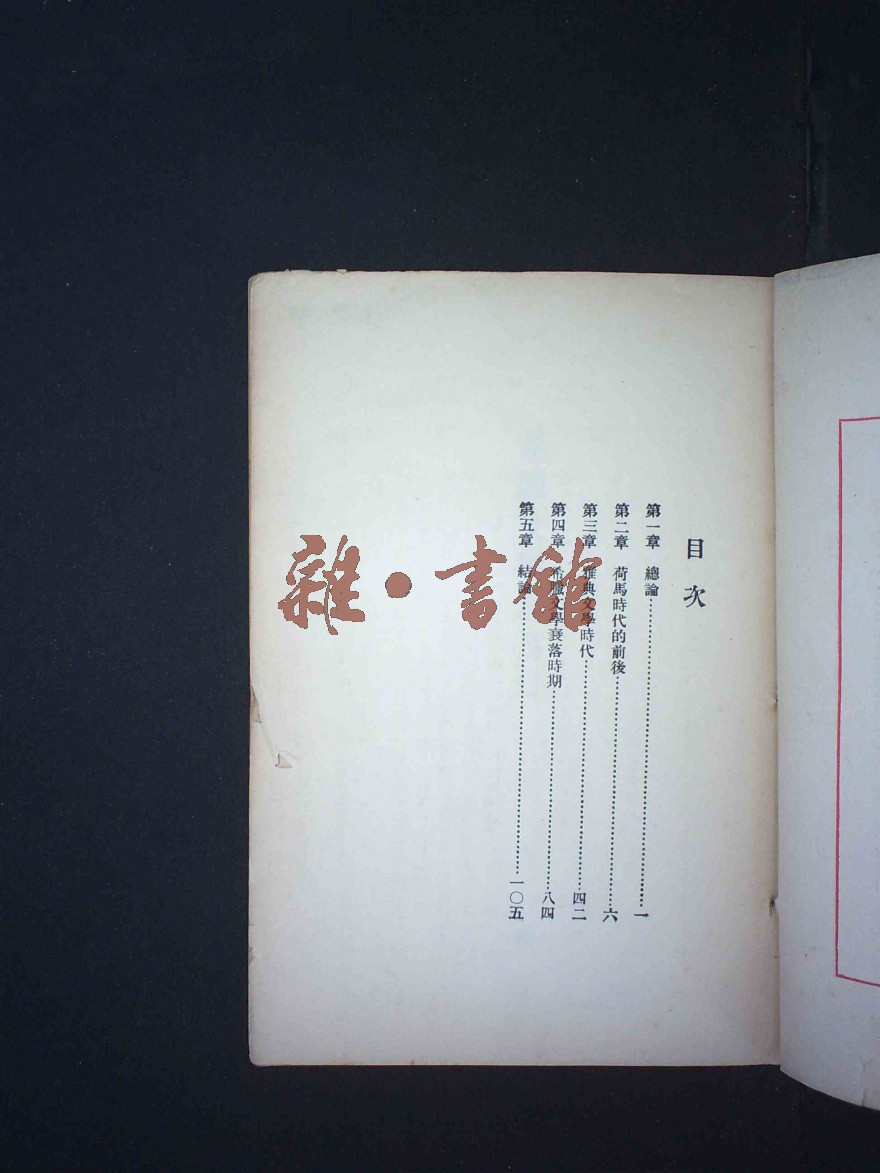 目次
第一章 總論一
第二章 荷馬時代的前後六
第三章 雅典文學時代四二
第四章 希臘文學衰落時期八四
第五章 結論一〇五
雜·書館